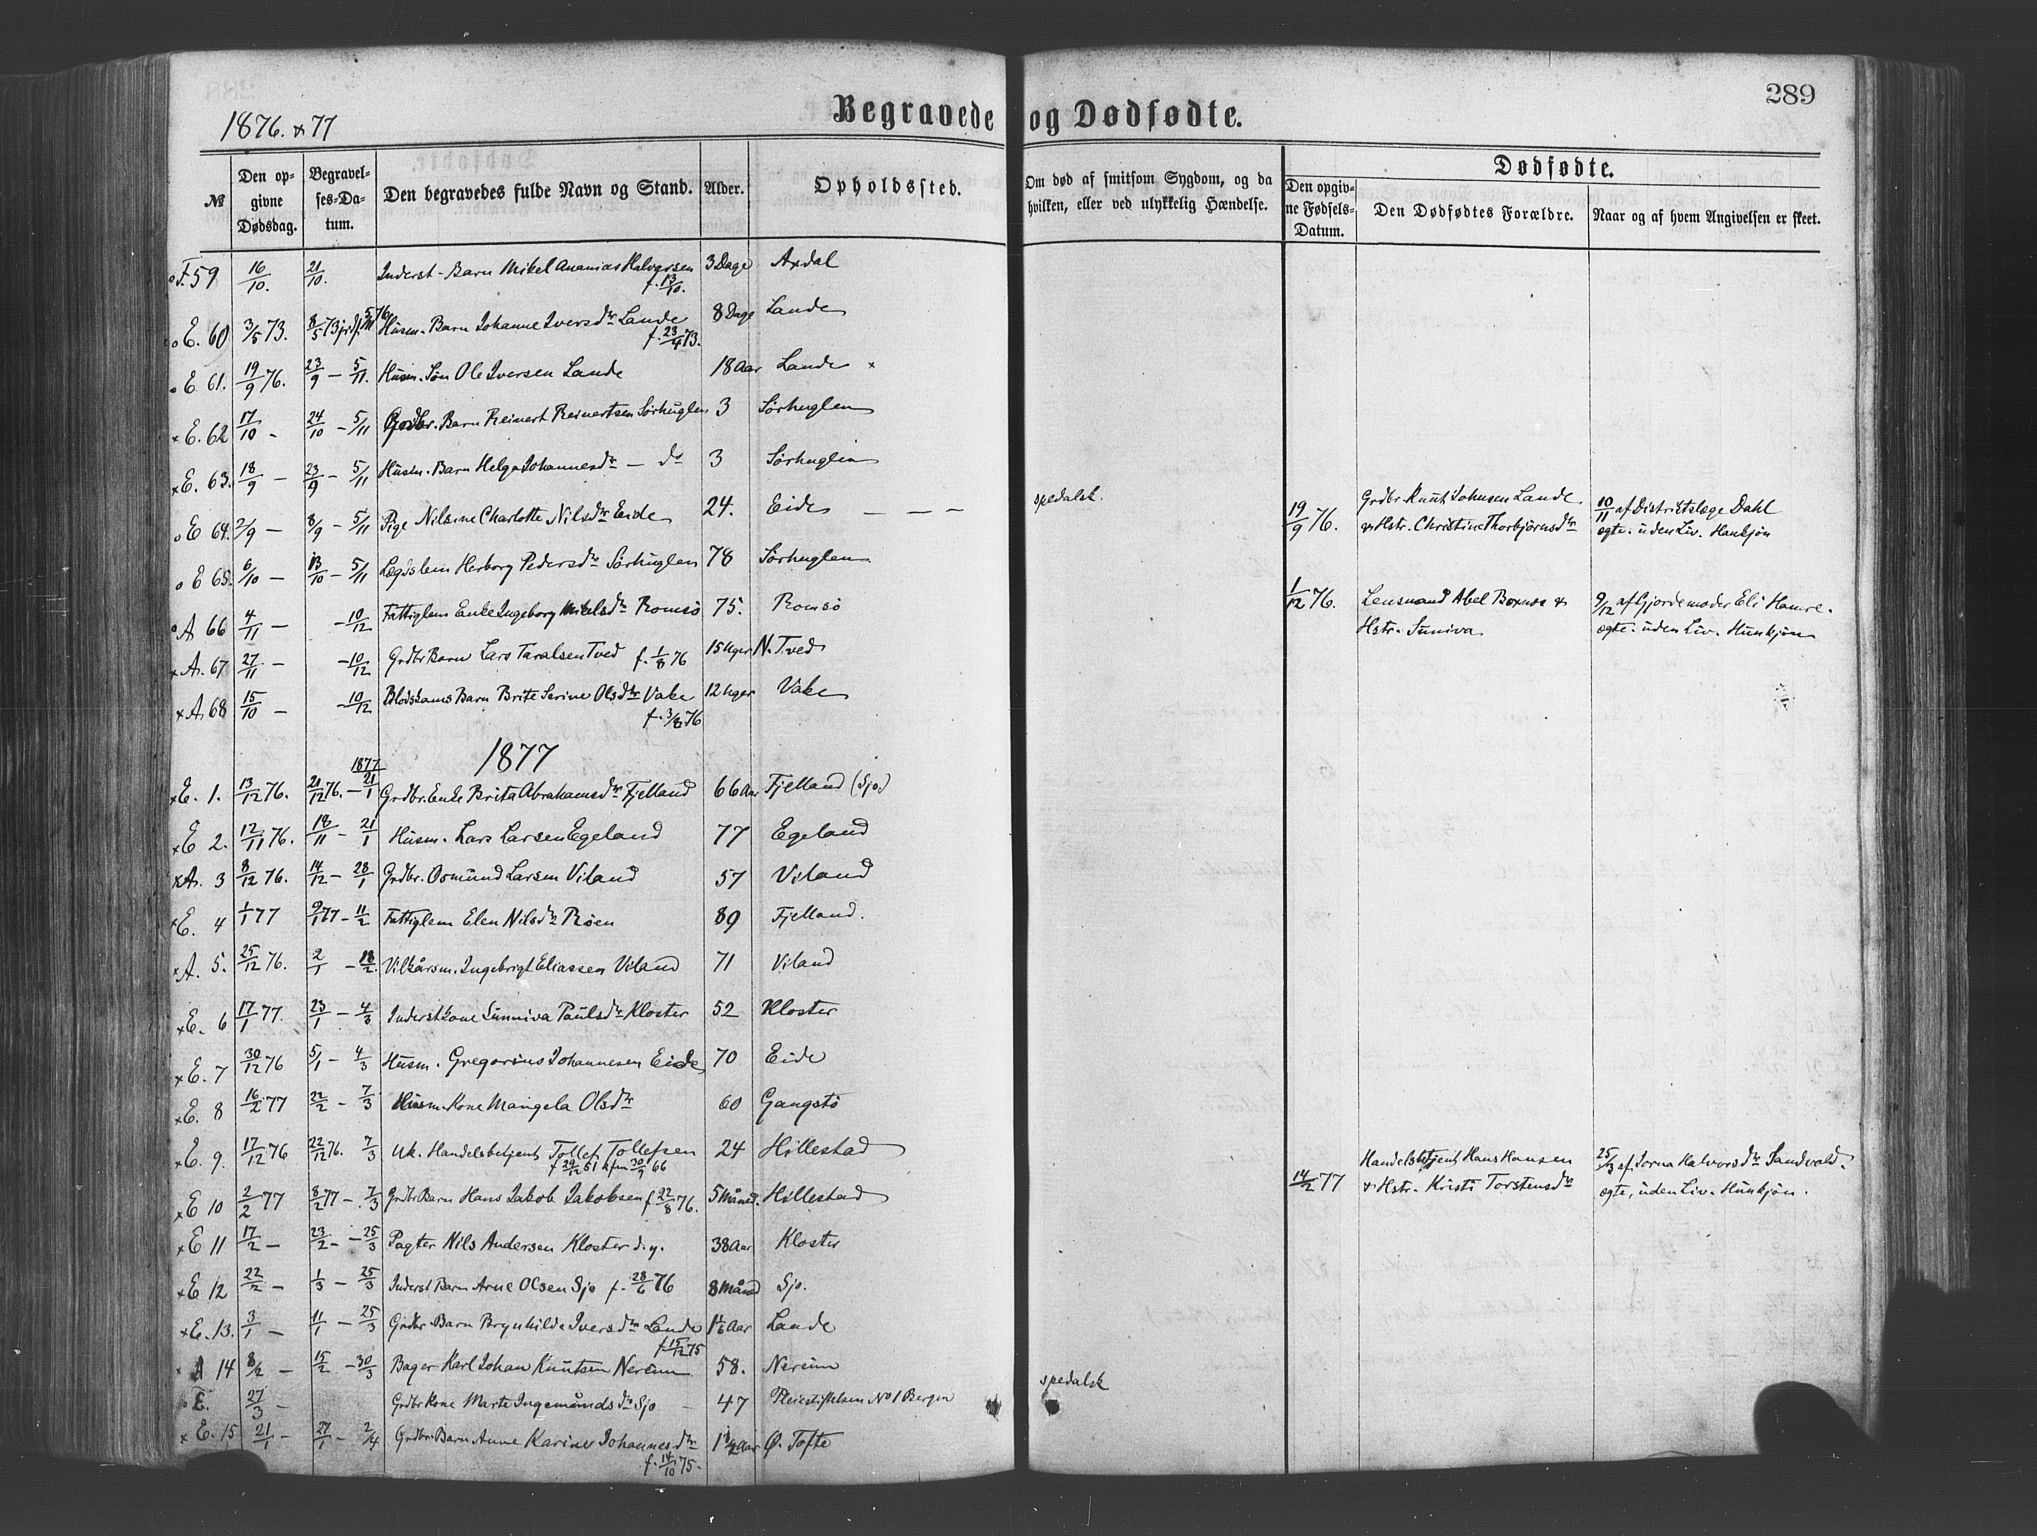 1876. & 77
Begravede og Dødfødte.
289
№
Den opgivne Dødsdag.
Begravelses-Datum.
Den begravedes fulde Navn og Stand.
Alder.
Opholdssted.
Om død af smitsom Sygdom, og da hvilken, eller ved ulykkelig Hændelse.
Dødfødte.
Den opgivne Fødsels-Datum.
Den Dødfødtes Forældre.
Naar og af hvem Angivelsen er skeet.
F. 59 16/10. 21/10. Inderst-Barn Mikel Ananias Halvorsen 3 Dage Axdal
f. 13/10.
E. 60 3/5 73. 8/5 73 5/11 76 Husm. Barn Johanne Iversdtr Lande 8 Dage Lande
f. 23/4 73.
E. 61. 19/9 76. 23/9 - 5/11. Husm. Søn Ole Iversen Lande 18 Aar Lande
E. 62 17/10 - 24/10 - 5/11 Grdbr. Barn Reinert Reinertsen Sørhuglen 3 Sørhuglen
E. 63. 18/9 - 23/9 - 5/11 Husm. Barn Helga Johannesdtr - do 3 Sørhuglen
E 64. 2/9 - 8/9 - 5/11 Pige Nilsine Charlotte Nilsdtr Eide 24. Eide - - - spedalsk.
19/9 76. Grdbr Knut Johnsen Lande & Hstr. Christine Thorbjørnsdtr 10/11 af Distriktslæge Dahl
ægte. uden Liv. Hankjøn
E 65. 6/10 - 13/10 - 5/11 Lægdslem Herborg Pedersdtr Sørhuglen 78 Sørhuglen
A 66 4/11 - - 10/12 Fattiglem Enke Ingeborg Nielsdtr Romsø 75. Romsø
1/12 76. Lensmand Abel Boxnæs & Hstr. Sunniva 9/12 af Gjordemoder Eli Hamre.
ægte. uden Liv. Hunkjøn
A. 67 27/11 - - 10/12 Grdbr Barn Lars Taralsen Tved f. 1/8 76 15 Uger N. Tved
A. 68 15/10 - - 10/12 Blodskams Barn Brite Serine Olsdtr Vake 12 Uger Vake
f. 3/8 76
1877
1877
E. 1. 13/12 76. 21/12 76. - 21/1 Grdbr. Enke Brita Abrahamsdtr Fjelland 66 Aar Fjelland (Sjo)
E 2. 12/11 76. 18/11 - 21/1 Husm. Lars Larsen Egeland 77 Egeland
A. 3 8/12 76. 14/12 - 28/1 Grdbr. Osmund Larsen Viland 57 Viland
E. 4 1/1 77 9/1 77 - 11/2 Fattiglem Elen Nilsdtr Røen 89 Fjelland.
A. 5. 25/12 76. 2/1 - 18/2. Vilkårsm. Ingebrigt Eliassen Viland 71 Viland
E. 6 17/1 77. 23/1 - 4/3 Inderstkone Sunniva Paulsdtr Kloster 52 Kloster
E. 7 30/12 76 5/1 - 4/3 Husm. Gregorius Johannesen Eide 70 Eide
E. 8 16/2 77 22/2 - 7/3 Husm. Kone Mangela Olsdtr 60 Gangstø
E. 9. 17/12 76 22/12 76. 7/3 Uk. Handelsbetjent Tollef Tollefsen 24 Hillestad
f 29/12 51 kfm 30/9 66
E 10 2/2 77 8/2 77 - 7/3 Grdbr Barn Hans Jakob Jakobsen f 22/8 76. 5 Måned. Hillestad
14/2 77 Handelsbetjent Hans Hansen & Hstr. Kristi Torstensdtr 25/3 af Jorna Halvorsdtr Sandvold.
ægte, uden Liv. Hunkjøn.
E 11 17/2 - 23/2 - 25/3 Pagter Nils Andersen Kloster d.y. 38 Aar Kloster
E 12 22/2 - 1/3 - 25/3 Inderst Barn Arne Olsen Sjo f. 28/6 76 8 Måned Sjo.
E. 13. 3/1 - 11/1 - 25/3 Grdbr Barn Brynhilde Iversdtr Lande 1 1/6 Aar Lande
f. 15/12 75
A 14 8/2 - 15/2 - 30/3 Bager Karl Johan Knutsen Nereim 58. Nereim
E. 27/3 - Grdbr Kone Marte Ingemundsdtr Sjo - 47 Pleiestiftelsen No 1 Bergen spedalsk
E. 15 21/1 - 27/1 - 2/4 Grdbr. Barn Anne Karine Johannesdtr 1 1/4 Aar Ø. Tofte
f. 14/10 75.